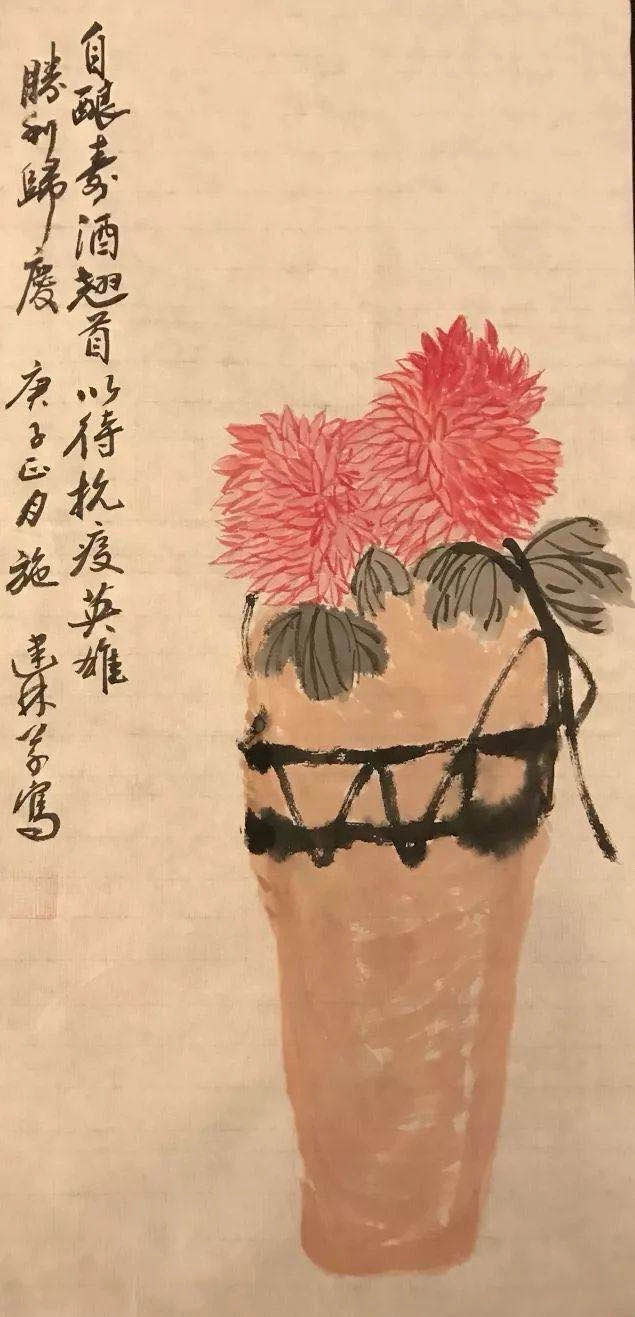 自酿寿酒翘首以待抗疫英雄
勝利歸慶 庚子正月施建林草寫